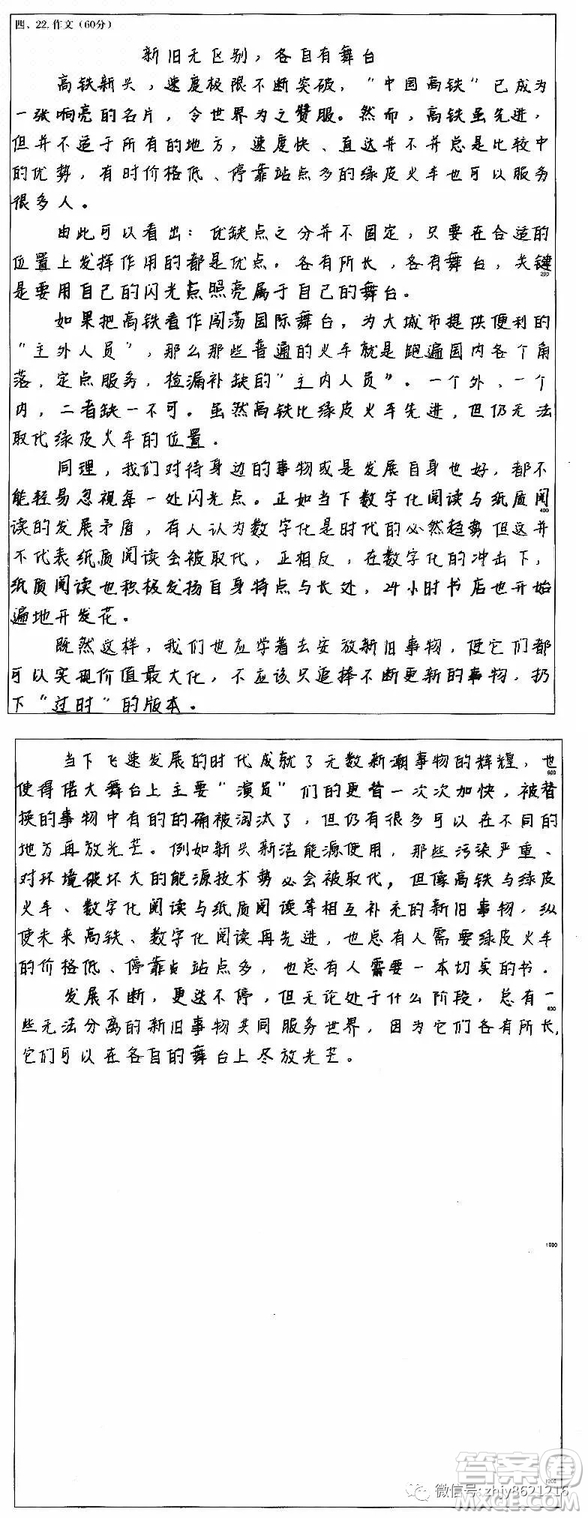 四、22.作文(60分)
新旧无区别，各自有舞台
高铁新兴，速度极限不断突破，“中国高铁”已成为
一张响亮的名片，令世界为之赞服。然而，高铁虽先进，
但并不适于所有的地方，速度快、直达并不并总是比较中
的优势，有时价格低、停靠站点多的绿皮火车也可以服务
很多人。
由此可以看出：优缺点之分并不固定，只要在合适的
位置上发挥作用的都是优点。各有所长，各有舞台，关键
200
是要用自己的闪光点照亮属于自己的舞台。
如果把高铁看作闯荡国际舞台，为大城市提供便利的
“主外人员”，那么那些普通的火车就是跑遍国内各个角
落，定点服务，捡漏补缺的“主内人员”。一个外、一个
内，二者缺一不可。虽然高铁比绿皮火车先进，但仍无法
取代绿皮火车的位置。
同理，我们对待身边的事物或是发展自身也好，都不
能轻易忽视每一处闪光点。正如当下数字化阅读与纸质阅
400
读的发展矛盾，有人认为数字化是时代的必然趋势但这并
不代表纸质阅读会被取代，正相反，在数字化的冲击下，
纸质阅读也积极发扬自身特点与长处，24小时书店也开始
遍地开发花。
既然这样，我们也应学着去安放新旧事物，使它们都
可以实现价值最大化，不应该只追捧不断更新的事物，扔
下“过时”的版本。
当下飞速发展的时代成就了无数新潮事物的辉煌，也
600
使得偌大舞台上主要“演员”们的更替一次次加快，被替
换的事物中有的的确被淘汰了，但仍有很多可以在不同的
地方再放光芒。例如新兴新洁能源使用，那些污染严重、
对环境破坏大的能源技术势必会被取代，但像高铁与绿皮
火车、数字化阅读与纸质阅读等相互补充的新旧事物，纵
使未来高铁、数字化阅读再先进，也总有人需要绿皮火车
的价格低、停靠站点多，也总有人需要一本切实的书。
发展不断，更迭不停，但无论处于什么阶段，总有一
800
些无法分离的新旧事物共同服务世界，因为它们各有所长，
它们可以在各自的舞台上尽放光芒。
1000
答案圈
微信号:zhiy8621216
MXQE.COM